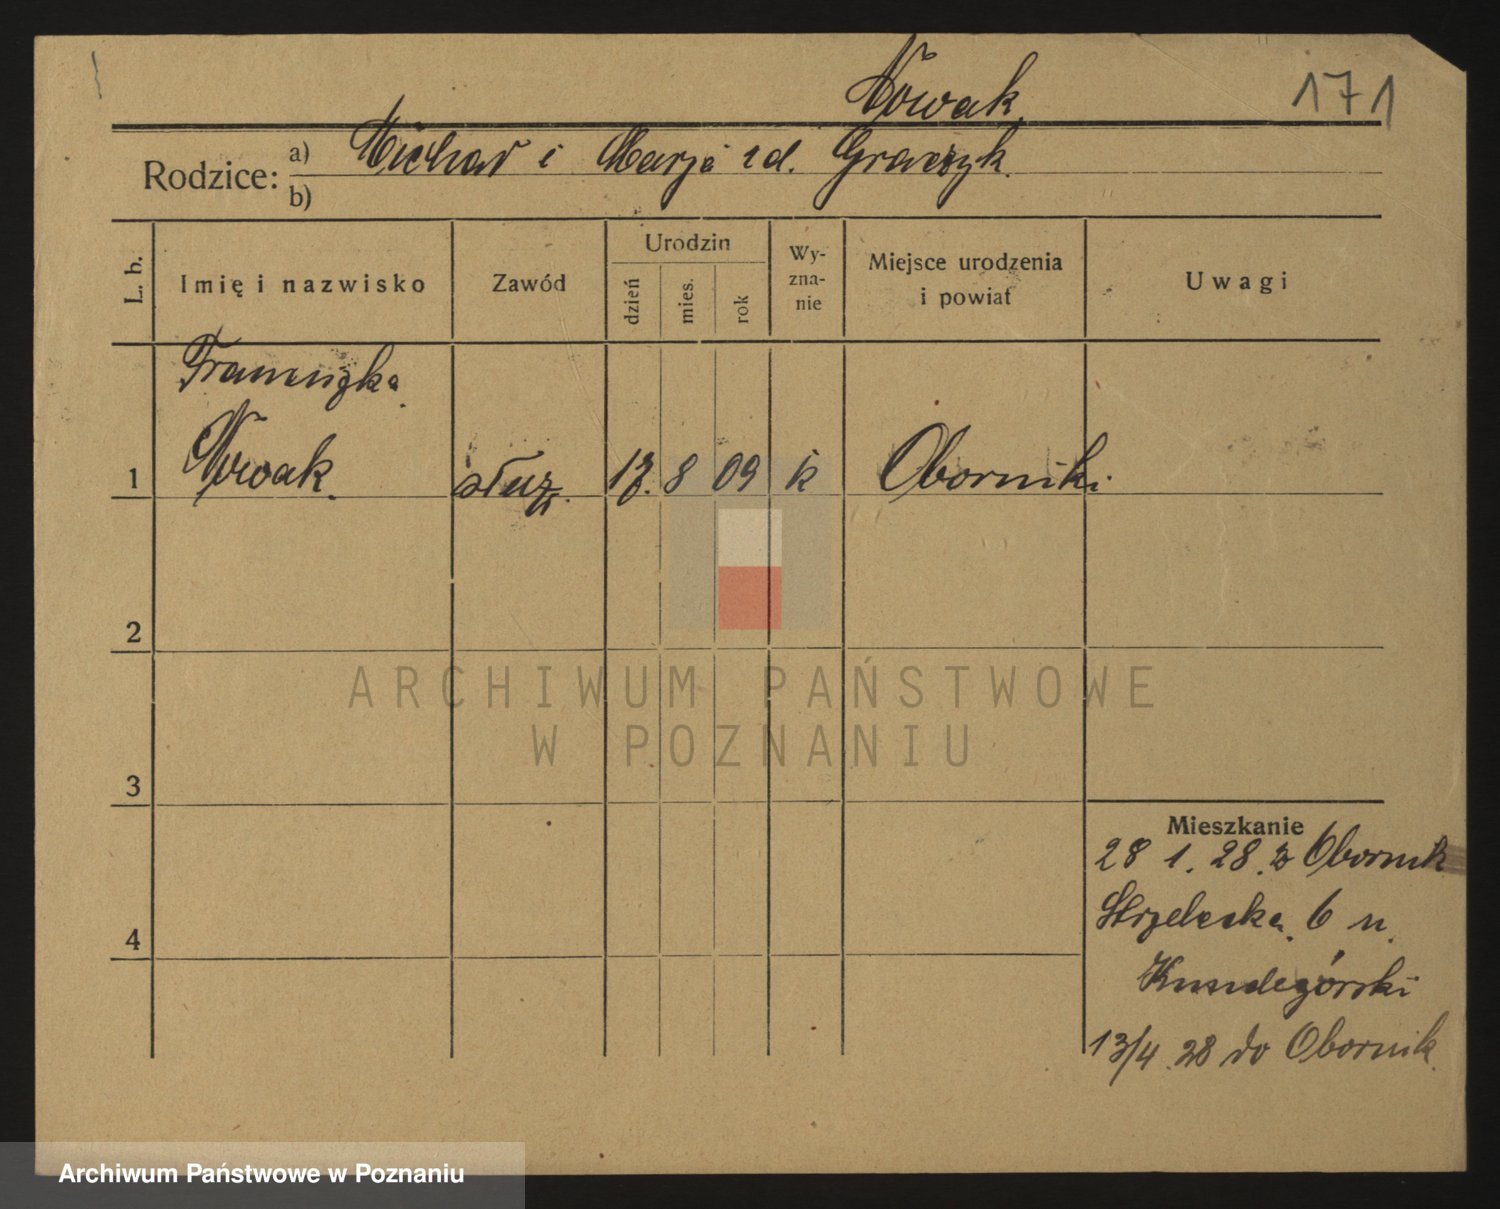 Nowak
171
Rodzice: a) Michał i Marja zd. Graczyk.
b)
L. b.
Imię i nazwisko
Zawód
Urodzin
dzień
mies.
rok
Wy-
zna-
nie
Miejsce urodzenia
i powiat
Uwagi
Franciszka
1 Nowak. służ. 8 09 k Oborniki
2
ARCHIWUM PAŃSTWOWE
W POZNANIU
3
Mieszkanie
28 1. 28. z Obornik
Strzelecka 6 u.
4
13/4. 28 do Obornik.
Archiwum Państwowe w Poznaniu